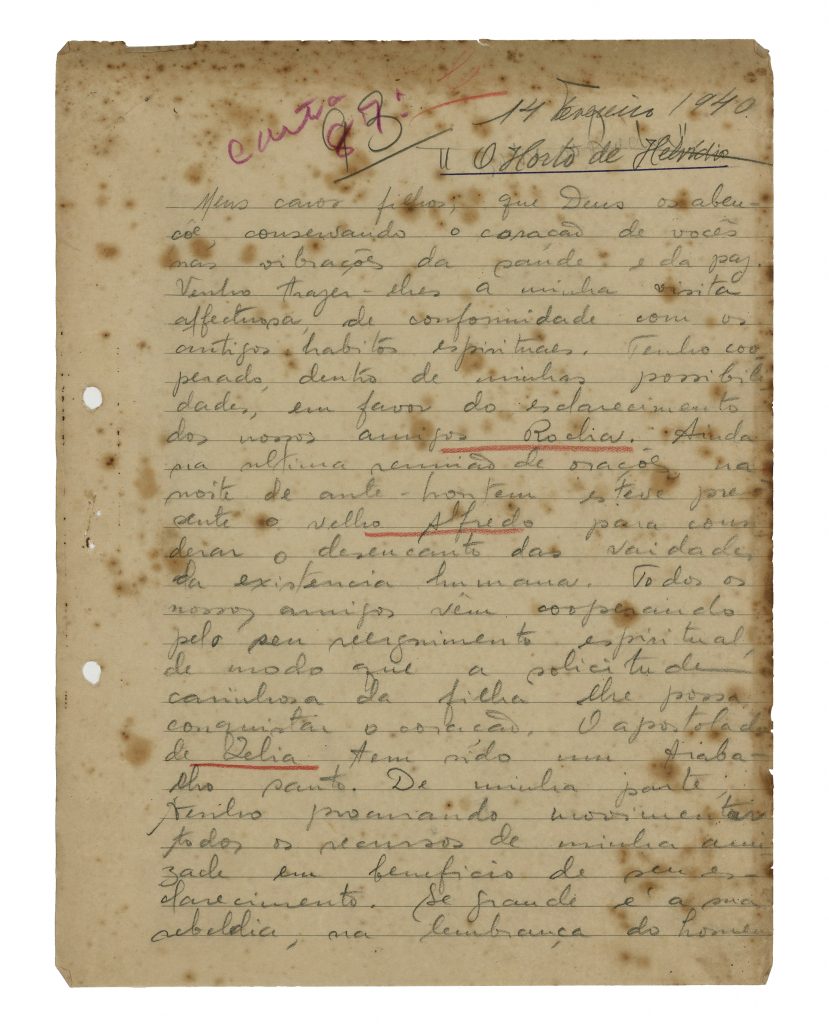 carta 97:
14 Fevereiro 1940
"O Horto de Helvidio"
Meus caros filhos, que Deus os aben-
çôe conservando o coração de vocês
nas vibrações da saúde e da paz.
Venho trazer-lhes a minha visita
affectuosa, de conformidade com os
antigos habitos espirituaes. Tenho coo
perado, dentro de minhas possibili
dades, em favor do esclarecimento
dos nossos amigos Rocha. Ainda
na ultima reunião de orações, na
noite de ante-hontem esteve pre
sente o velho Alfredo para consi
derar o desencanto das vaidades
da existencia humana. Todos os
nossos amigos vêm cooperando
pelo seu reerguimento espiritual,
de modo que a solicitude
carinhosa da filha lhe possa
conquistar o coração. O apostolado
de Zelia tem sido um traba-
lho santo. De minha parte,
venho procurando movimentar
todos os recursos de minha ami
zade em beneficio de seu es-
clarecimento. Se grande é a sua
rebeldia, na lembrança do homem